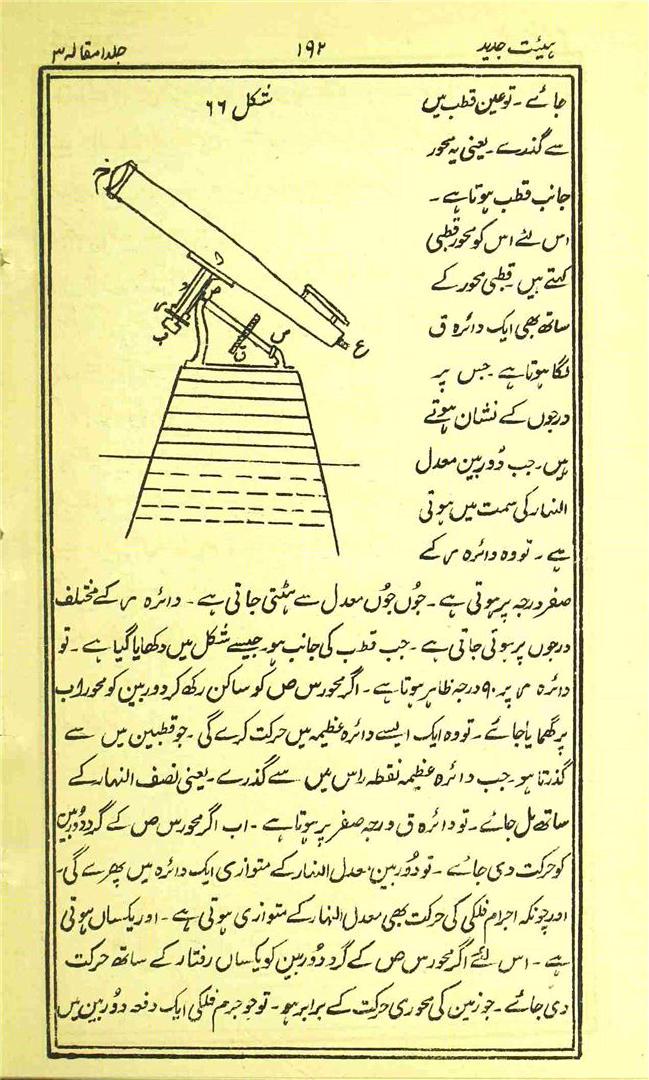 ہیئت جدید ۱۹۲ جلد۱ مقالہ ۳
شکل ۶۶
جائے ۔ تو عین قطب میں
سے گذرے ۔ یعنی یہ محور
جانب قطب ہوتا ہے ۔
اس لئے اس کو محور قطبی
کہتے ہیں ۔ قطبی محور کے
ساتھ بھی ایک دائرہ ق
لگا ہوتا ہے ۔ جس پر
درجوں کے نشان ہوتے
ہیں ۔ جب دُوربین معدل
النہار کی سمت میں ہوتی
ہے ۔ تو وہ دائرہ م کے
صفر درجہ پر ہوتی ہے ۔ جُوں جُوں معدل سے ہٹتی جاتی ہے ۔ دائرہ م کے مختلف
درجوں پر ہوتی جاتی ہے ۔ جب قطب کی جانب ہو ۔ جیسے شکل میں دکھایا گیا ہے ۔ تو
دائرہ م پر ۹۰ درجہ ظاہر ہوتا ہے ۔ اگر محور س ص کو ساکن رکھ کر دوربین کو محور اب
پر گھمایا جائے ۔ تو وہ ایک ایسے دائرہ عظیمہ میں حرکت کرے گی ۔ جو قطبین میں سے
گذرتا ہو ۔ جب دائرہ عظیمہ نقطہ راس میں سے گذرے ۔ یعنی نصف النہار کے
ساتھ مل جائے ۔ تو دائرہ ق درجہ صفر پر ہوتا ہے ۔ اب اگر محور س ص کے گرد دُوربین
کو حرکت دی جائے ۔ تو دُوربین معدل النہار کے متوازی ایک دائرہ میں پھرے گی ۔
اور چونکہ اجرام فلکی کی حرکت بھی معدل النہار کے متوازی ہوتی ہے ۔ اور یکساں ہوتی
ہے ۔ اس لئے اگر محور س ص کے گرد دُوربین کو یکساں رفتار کے ساتھ حرکت
دی جائے ۔ جو زمین کی محوری حرکت کے برابر ہو ۔ تو جو جرم فلکی ایک دفعہ دوربین میں
خ
د
ص
م
ب
ق
س
ع